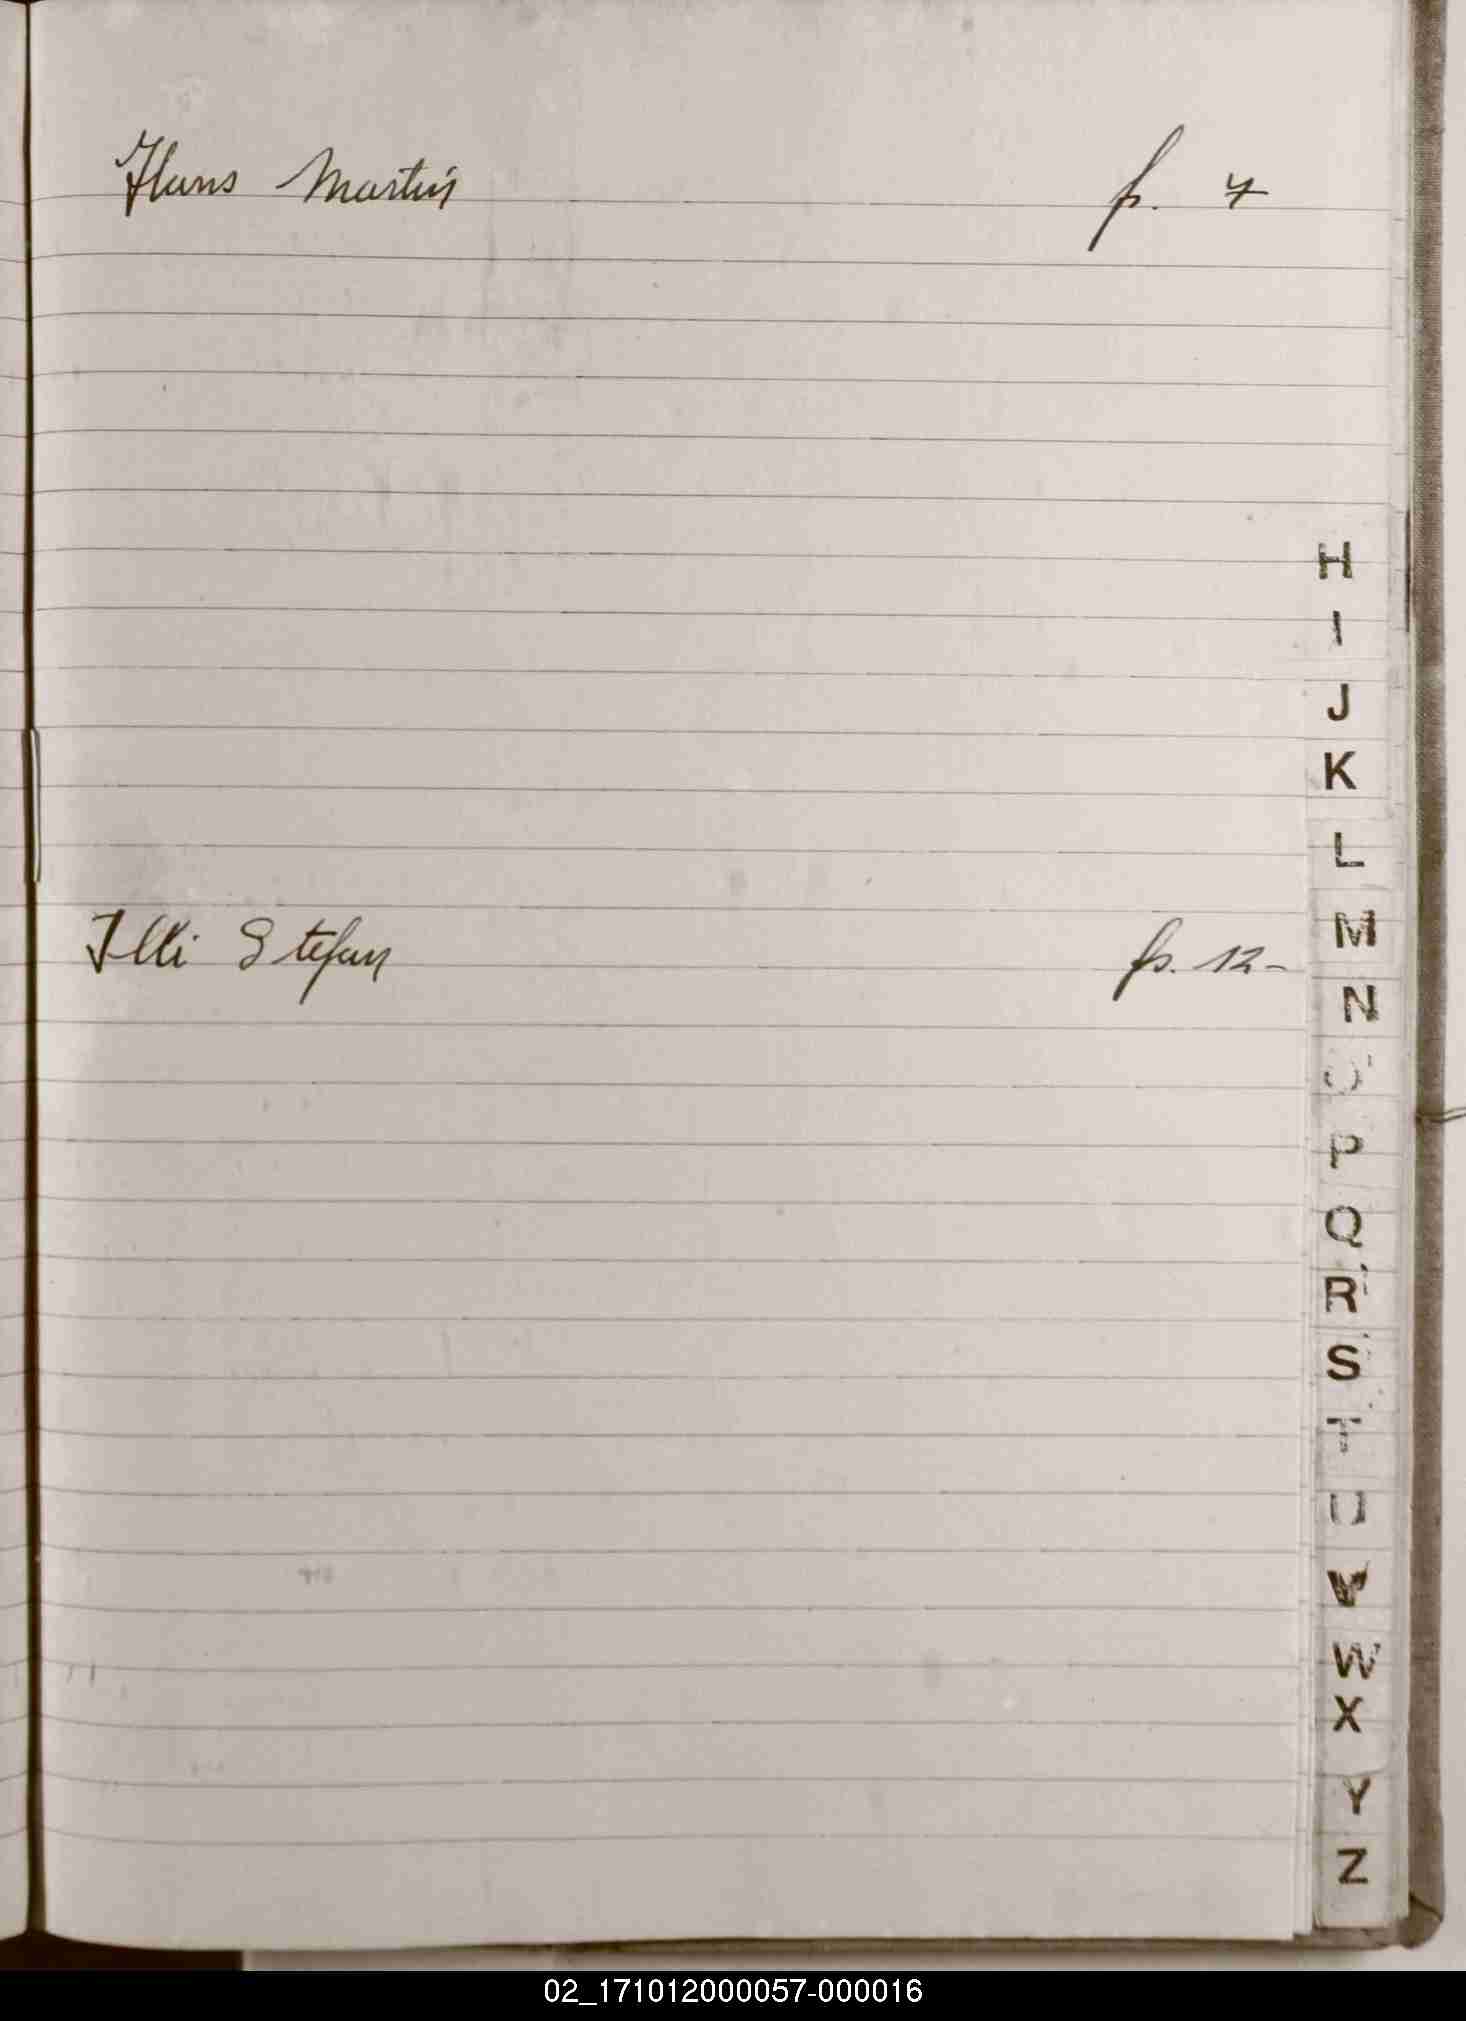 Ilans Martin fr. 7
Illi Stefan fr. 12-
H
I
J
K
L
M
N
O
P
Q
R
S
T
U
V
W
X
Y
Z
02_171012000057-000016